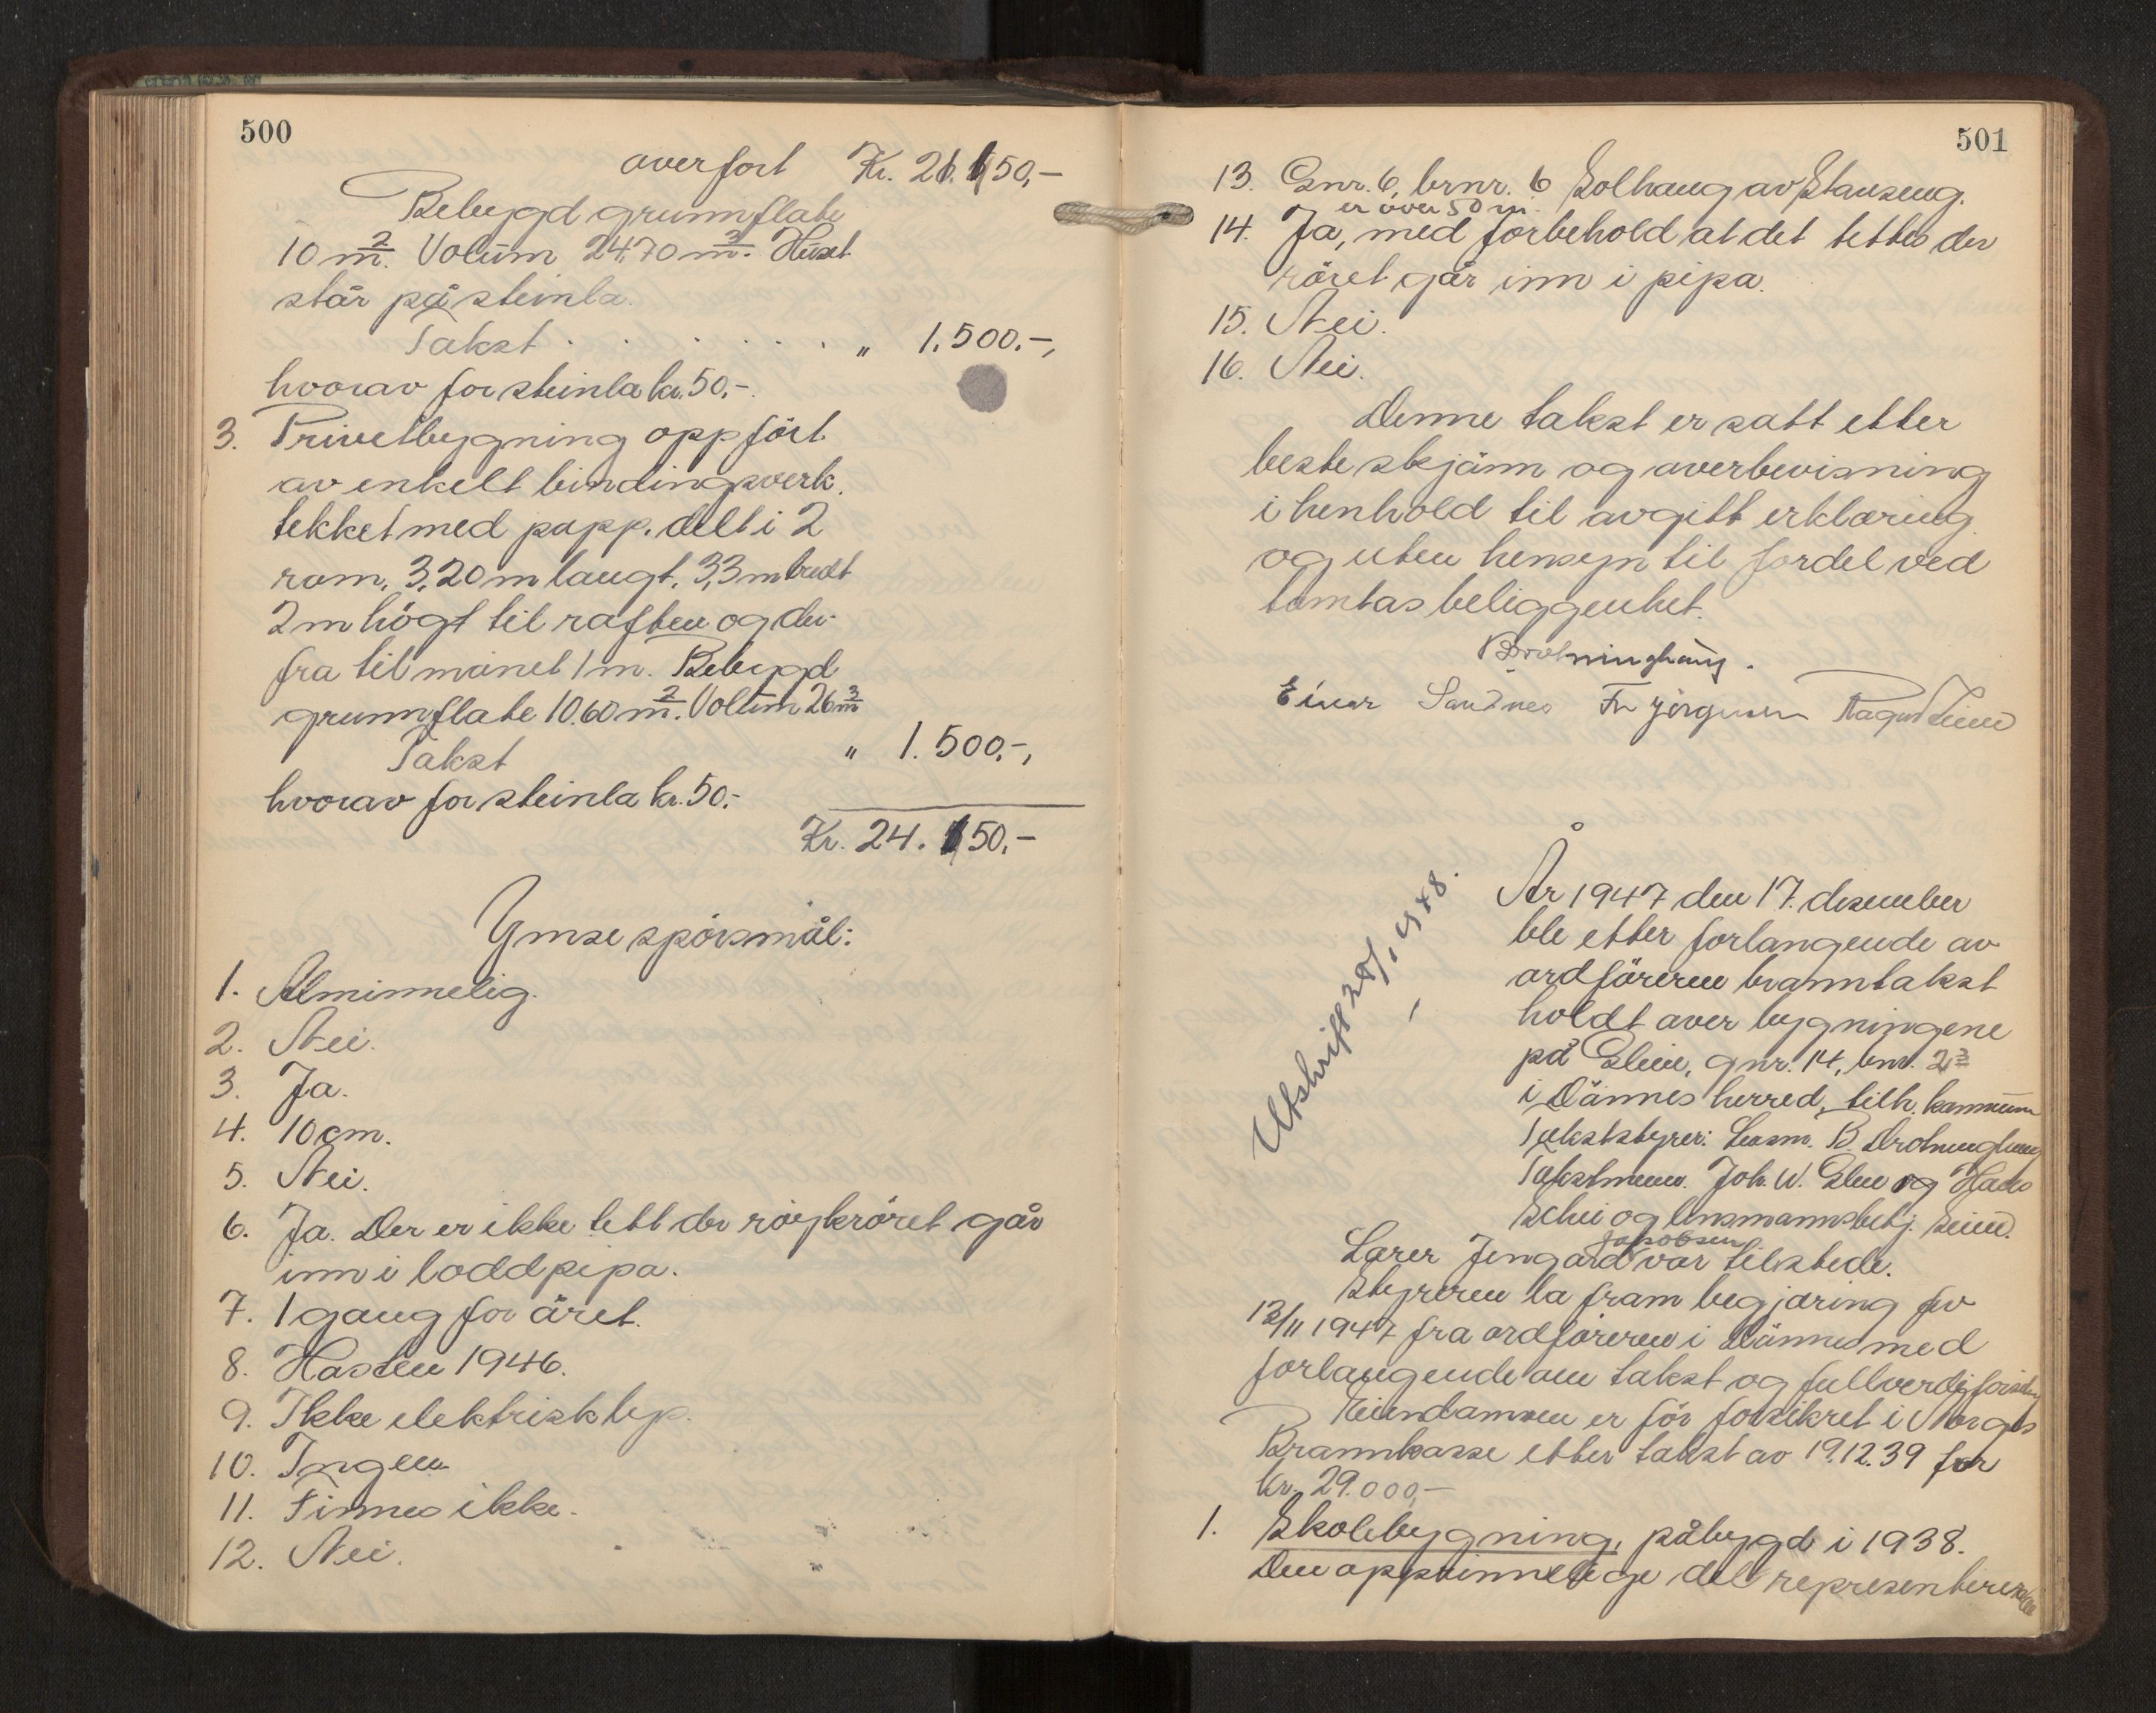 500
overført Kr. 21.150,-
Bebygd grunnflate
10 m². Volum 24,70 m³. Huset
står på steinla.
Takst . . . . . . " 1.500.-,
hvorav for steinla kr. 50,-.
3. Privetbygning oppført
av enkelt bindingsverk.
tekket med papp. delt i 2
rom, 3,20 m langt, 3,3 m bredt
2 m högt til raften og der-
fra til mønet 1 m. Bebygd
grunnflate 10.60 m². Volum 26 m³
Takst " 1.500,-,
hvorav for steinla kr. 50,-
Kr. 24.150,-
Ymse spörsmål:
1. Alminnelig.
2. Nei.
3. Ja.
4. 10 cm.
5. Nei.
6. Ja. Der er ikke tett der röykröret går
inn i loddpipa.
7. 1 gang for året.
8. Hösten 1946.
9. Ikke elektrisk lys.
10. Ingen
11. Finnes ikke.
12. Nei.
501
13. Gnr. 6, brnr. 6 Solhaug av Stauseng.
er över 50 m.
14. Ja, med forbehold at det tettes der
röret går inn i pipa.
15. Nei.
16. Nei.
Denne takst er satt etter
beste skjönn og overbevisning
i henhold til avgitt erklæring
og uten hensyn til fordel ved
tomtas beliggenhet.
Einar Sandnes Fr Jörgensen
År 1947 den 17. desember
ble etter forlangende av
ordföreren branntakst
holdt over bygningene
på Glein, gnr. 14, bnr. 23
i Dönnes herred, tilh. kommunen
Takstmenn. Joh. W. Glein og
og lensmannsbetj.
Utskrift 28/1 1948.
Lærer Jengård Jakobsen var tilstede.
Styreren la fram begjæring av
13/11 1947 fra ordföreren i Dönnes med
forlangende om takst og fullverdiforsikr.
Eiendommen er för forsikret i Norges
Brannkasse etter takst av 19.12.39 for
kr. 29.000,-
1. Skolebygning, påbygd i 1938.
Den opprinnelige del representerer